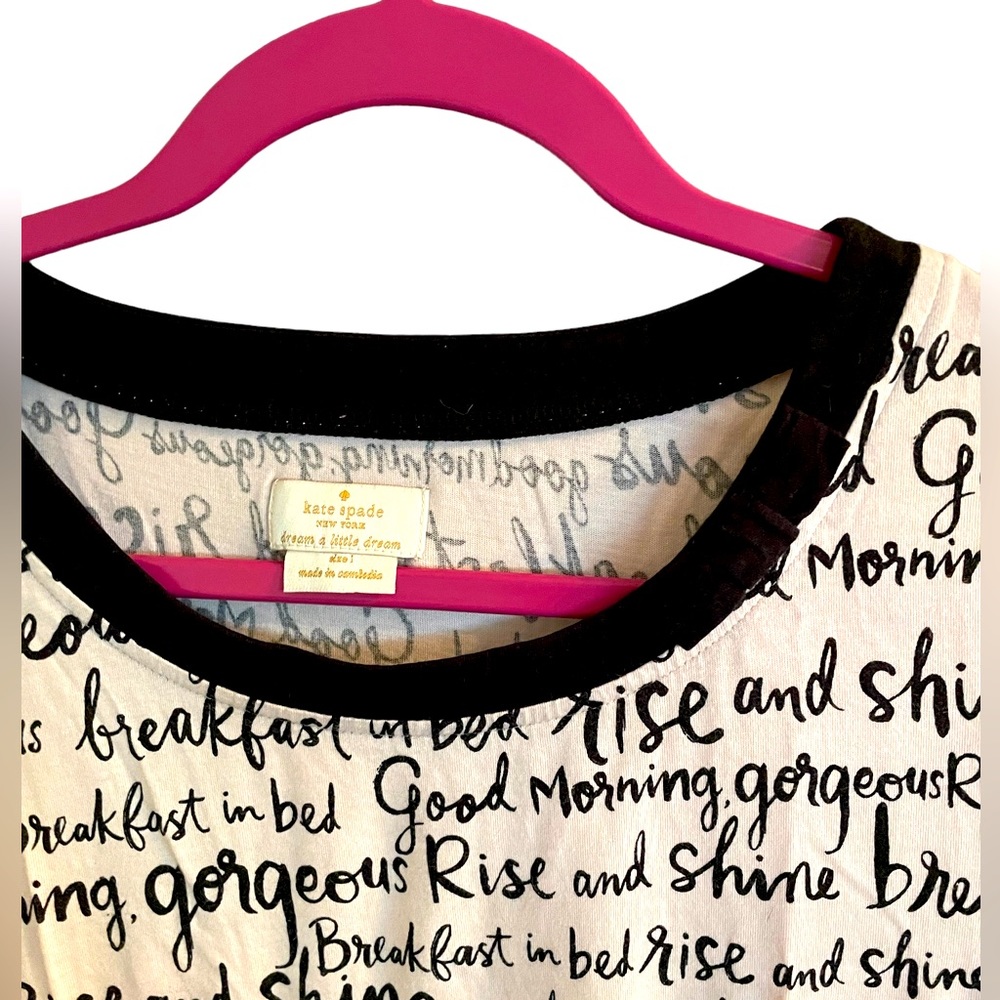 kate spade
NEW YORK
dream a little dream
size 1
made in cambodia
rea
d G
Morning
breakfast in bed rise and shi
breakfast in bed Good Morning, gorgeous R
ing, gorgeous Rise and shine bre
Breakfast in bed rise and shine
and shine